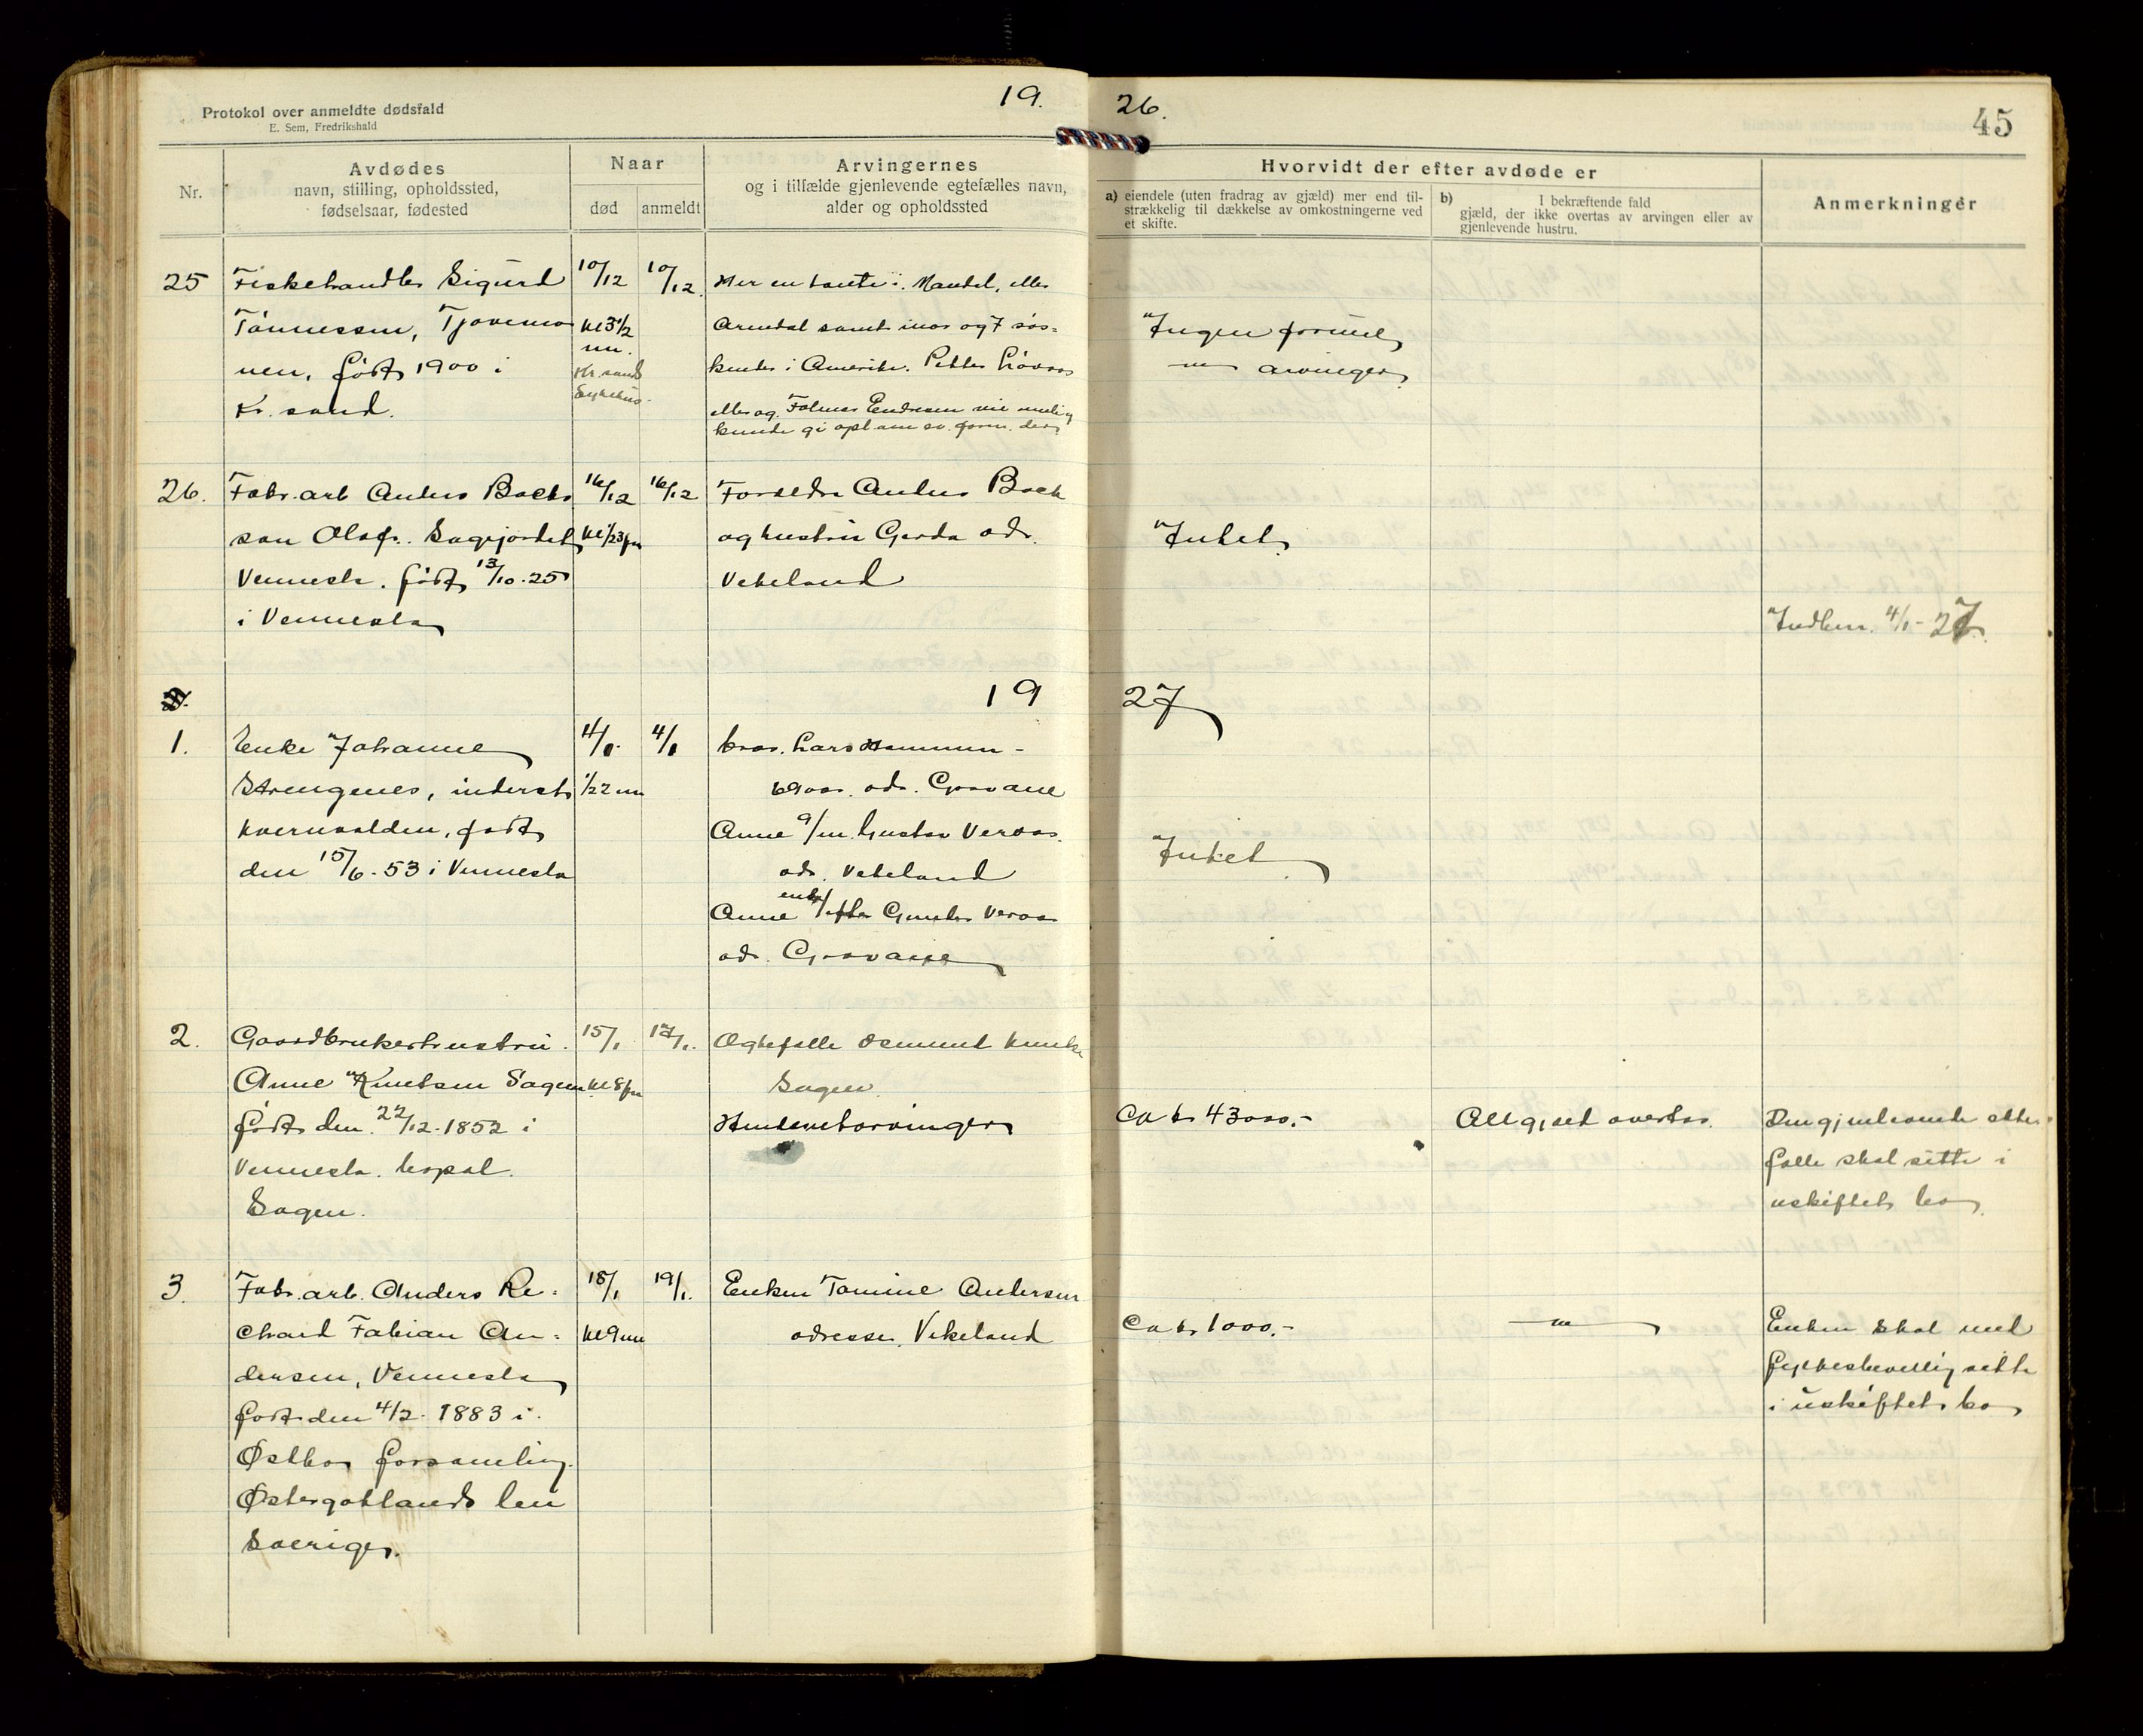 Protokol over anmeldte dødsfald
E. Sem, Fredrikshald
19
26.
45
Nr.
Avdødes
navn, stilling, opholdssted,
fødselsaar, fødested
Naar
død
anmeldt
Arvingernes
og i tilfælde gjenlevende egtefælles navn,
alder og opholdssted
Hvorvidt der efter avdøde er
a) eiendele (uten fradrag av gjæld) mer end til-
strækkelig til dækkelse av omkostningerne ved
et skifte.
b) I bekræftende fald
gjæld, der ikke overtas av arvingen eller av
gjenlevende hustru.
Anmerkninger
25
Fiskehandler Sigurd
Tönnessen, Tjovemo
nen, født 1900 i
Kr.sand.
10/12
kl 3 1/2
Kr.sands
Sykehus.
10/12.
Har en tante i Mandal, eller
Arendal samt mor og 7 søs-
kender i Amerika. Petter Lövaas
eller og Folmer Endresen
kunde gi opl. om
Ingen formue
arvinger
26.
Fabr.arb Anders Backs
søn Olaf. Sagjordet
Vennesla. født 13/10-25
i Vennesla
16/12
16/12
Forældre Anders Back
og hustru Gerda adr.
Vikeland
Intet
Indber. 4/1-27.
19
27
1.
Enke Johanne
Strengenes, inderst
Kvernvolden, født
den 15/6-53 i Vennesla
4/1
1/2 2 nm
4/1
bror. Lars
69 aar. adr. Grovane
Anne g/m. Gustav Veraas
adr. Vikeland
Anne enke/efter Gunder Veraas
adr. Grovane
Intet
2.
Gaardbrukerhustru
Anne Knutsen Sagen
født den 22/12-1852 i
Vennesla. bopæl.
Sagen.
15/1
kl 8 fm
17/1.
Ægtefælle Osmund Knutsen
Sagen
Ca kr 43000.-
All gjæld overtas.
Den gjenlevende ekte-
fælle skal sitte i
uskiftet bo
3.
Fabr.arb. Anders Ri-
chard Fabian An-
dersen, Vennesla
født den 4/2-1883 i
Østbo forsamling.
Østergøtlands len
Sverige.
18/1
kl 9 nm
19/1.
Enken Tomine Andersen
adresse. Vikeland
Ca kr 1000.-
Enken skal med
fylkesbevillig sitte
i uskiftet bo